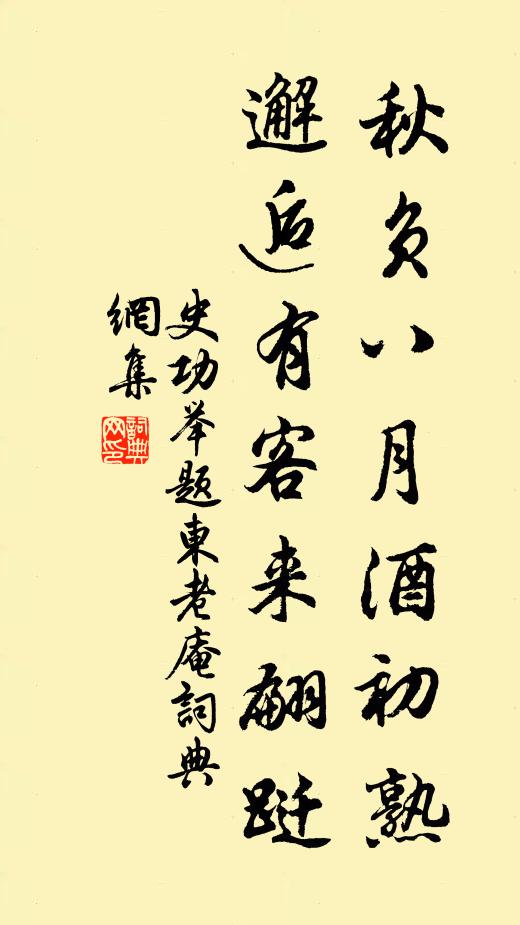 秋负八月酒初熟
邂逅有客来翩跹
史功举题東老庵詞典
網集
詞典
网印